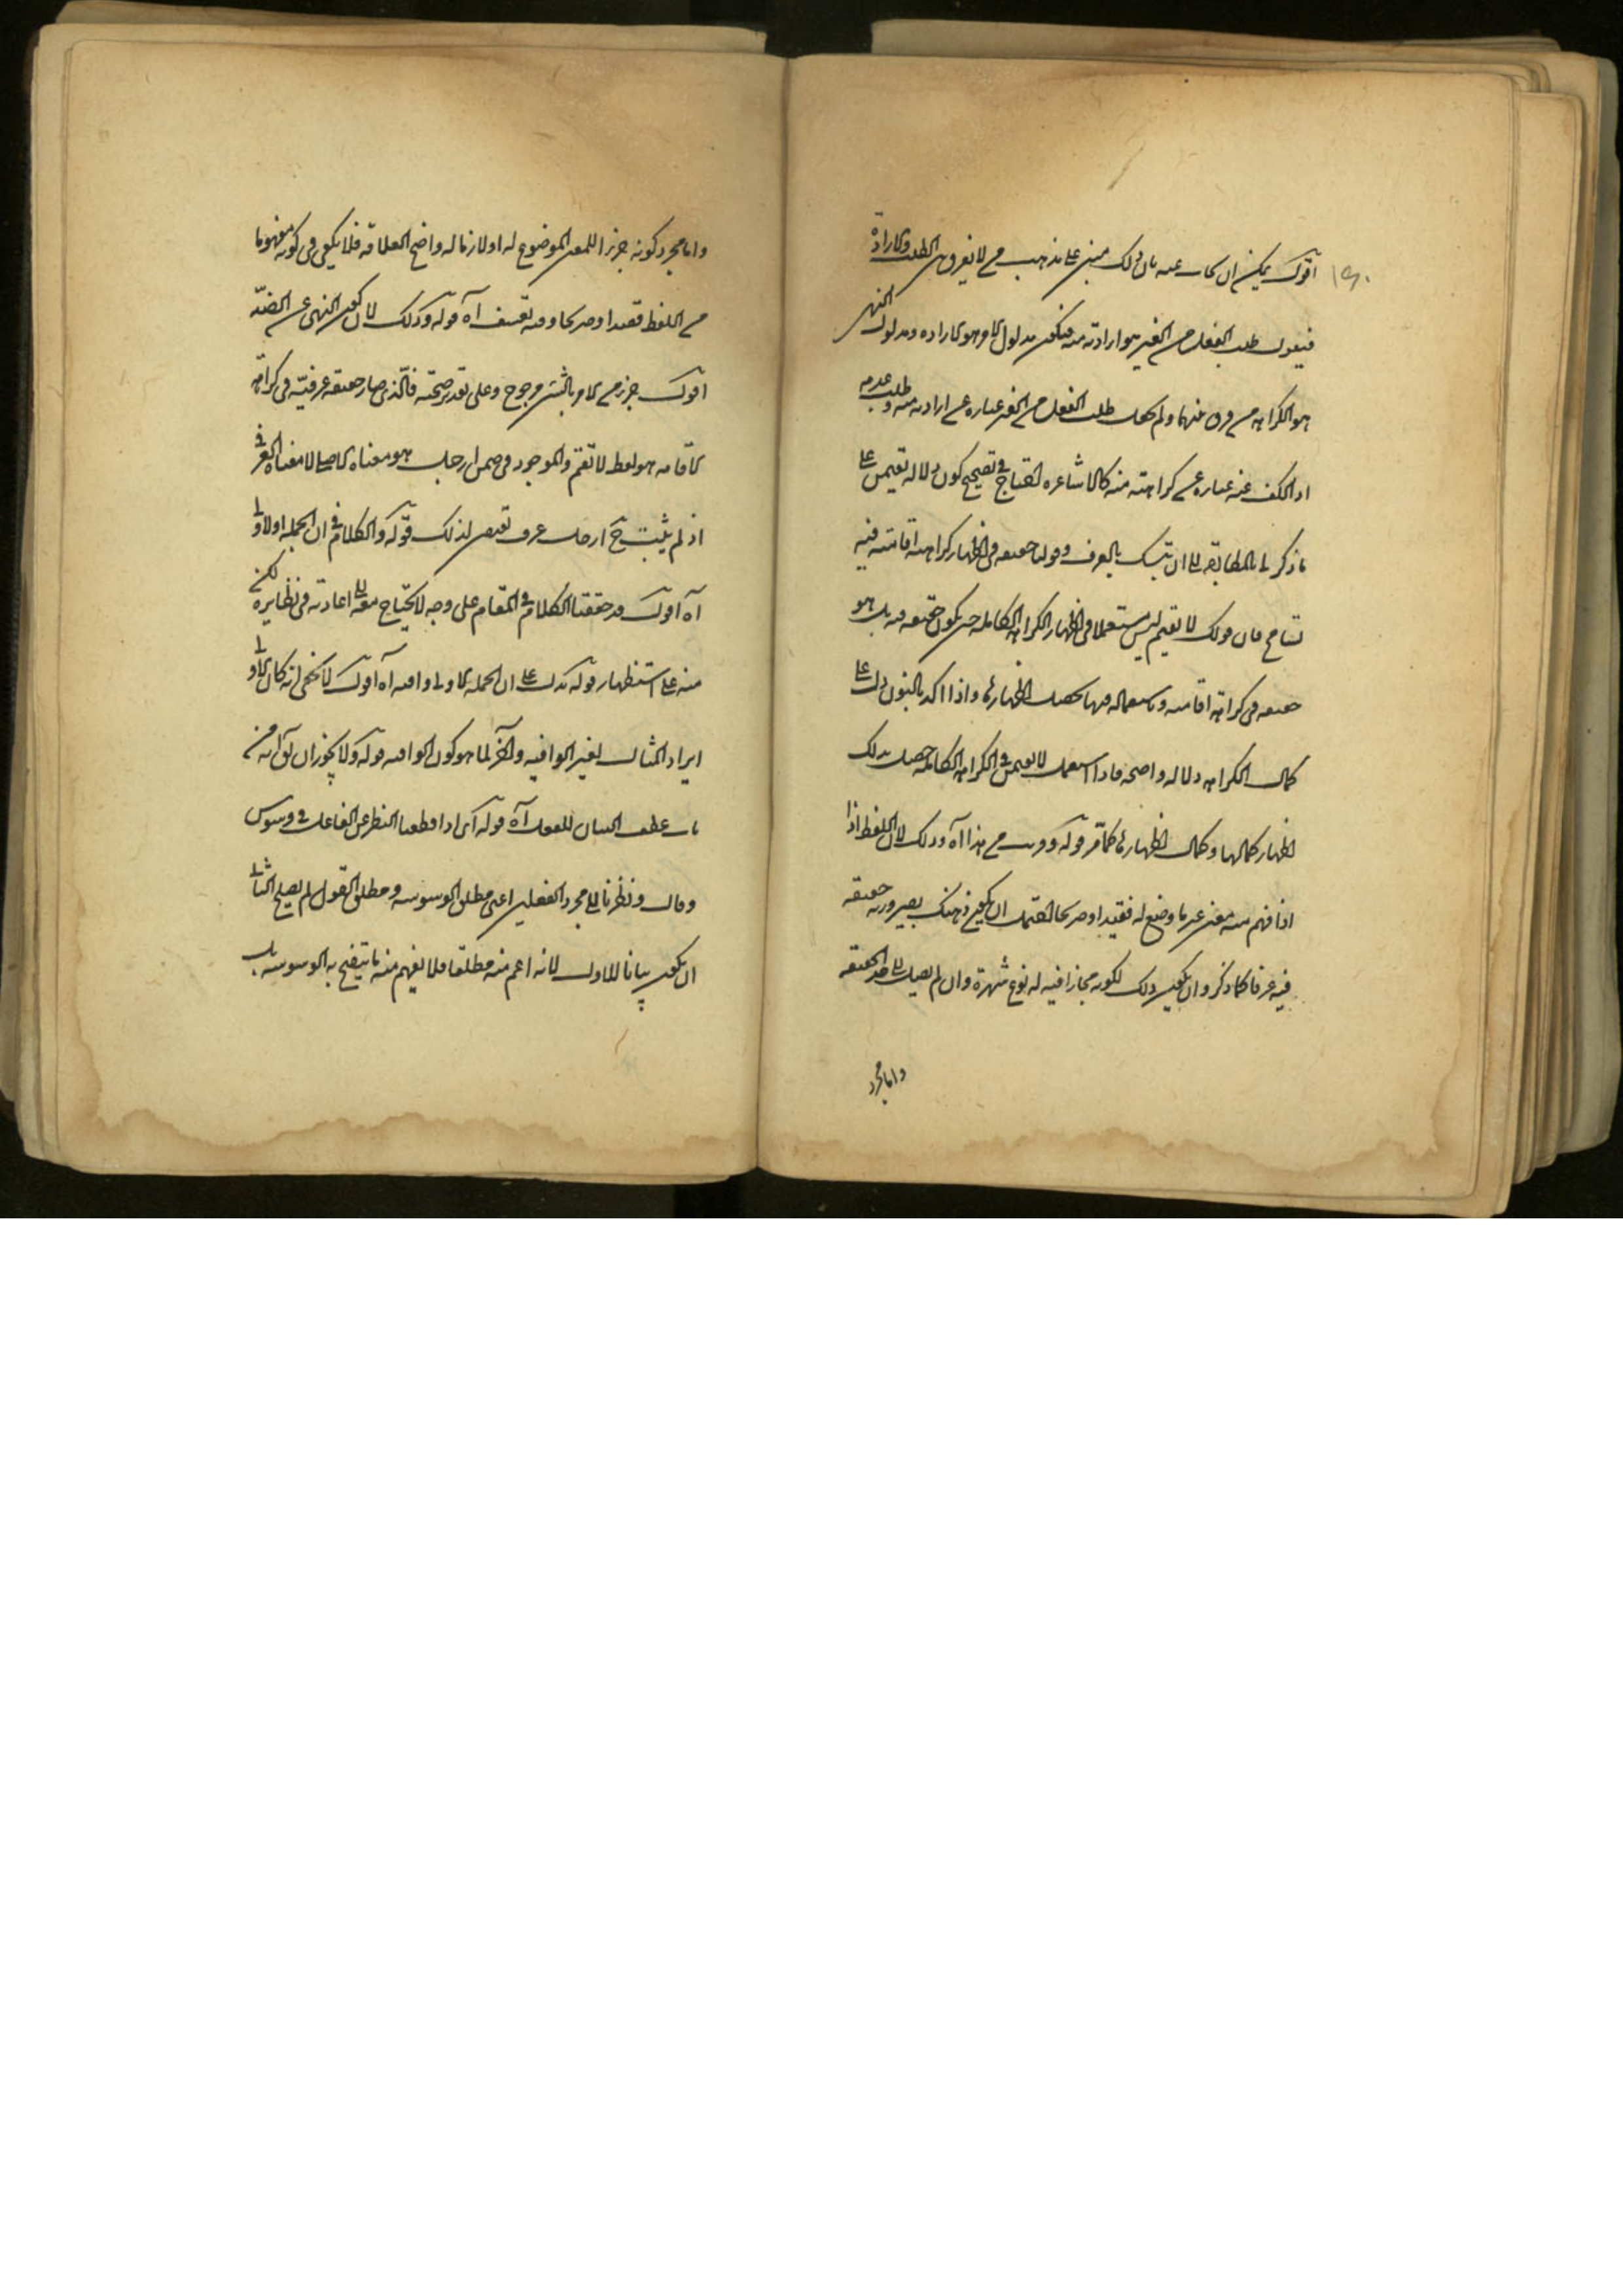 اقول يمكن ان يجاب عنه بان ذلك مبنى على مذهب من لا يفرق بين الطلب والارادة
فيقول طلب الفعل من الغير هو ارادته منه فيكون مدلول الامر هو الارادة ومدلول النهى
هو الكراهة من فرق بينهما ولم يجعل طلب الفعل من الغير عبارة عن ارادته منه وطلب عدمه
او الكف عنه عبارة عن كراهته منه كالاشاعرة احتاج فى تصحيح كون دلالة لا تقيمن على
ما ذكر بالمطابقة الى ان يتمسك بالعرف وقوله حقيقة فى اظهار كراهة اقامته فيه
تسامح فان قولك لا تقيم ليس مستعملا فى اظهار الكراهة الكاملة حتى يكون حقيقة فيه بل هو
حقيقة فى كراهة اقامته وباستعماله فيها يحصل اظهارها واذا اكد بالنون دل على
كمال الكراهة دلالة واضحة فاذا استعمل لا تقيمن فى الكراهة الكاملة حصل بذلك
اظهار كمالها وكمال اظهارها كما مر قوله وقريب من هذا آه وذلك لان اللفظ اذا
اذا فهم منه معنى غير ما وضع له قصدا وصريحا احتمل ان يكون ذلك بصيرورته حقيقة
فيه عرفا كما ذكر وان يكون ذلك لكونه مجازا فيه له نوع شهرة وان لم يصل الى حد الحقيقة
واما مجرد
واما مجرد كونه جزءا للمعنى الموضوع له او لازما له واضح العلاقة فلا يكفى فى كونه مفهوما
من اللفظ قصدا وصريحا وفيه تعسف آه قوله وذلك لان كون النهى عن الضد
اقول جزء من الامر بالشىء مرجوح وعلى تقدير صحته فالذى صار حقيقة عرفية فى كراهة
الاقامة هو لفظ لا تقم والموجود فى ضمن ارحل هو معناه الاصلى لا معناه العرفى
اذ لم يثبت فى ارحل عرف يقتضى لذلك قوله والكلام فى ان الجملة الاولى
آه اقول قد حققنا الكلام فى المقام على وجه لا يحتاج معه الى اعادته فى نظايره لكن
منه على استظهار قوله يدل على ان الجملة الاولى وافية آه اقول لا يخفى انه كان الاولى
ايراد المثال لغير الوافية والآخر لما هو كون الوافية قوله ولا يجوز ان يق انه من
باب عطف البيان للفعل آه قوله اى اذا قطعنا النظر عن الفاعل فى وسوس
وقال ونظرنا الى مجرد الفعلين اعنى مطلق الوسوسة ومطلق القول لم يصلح الثانى
ان يكون بيانا للاول لانه اعم منه مطلقا فلا يفهم منه ما يتضح به الوسوسة بل